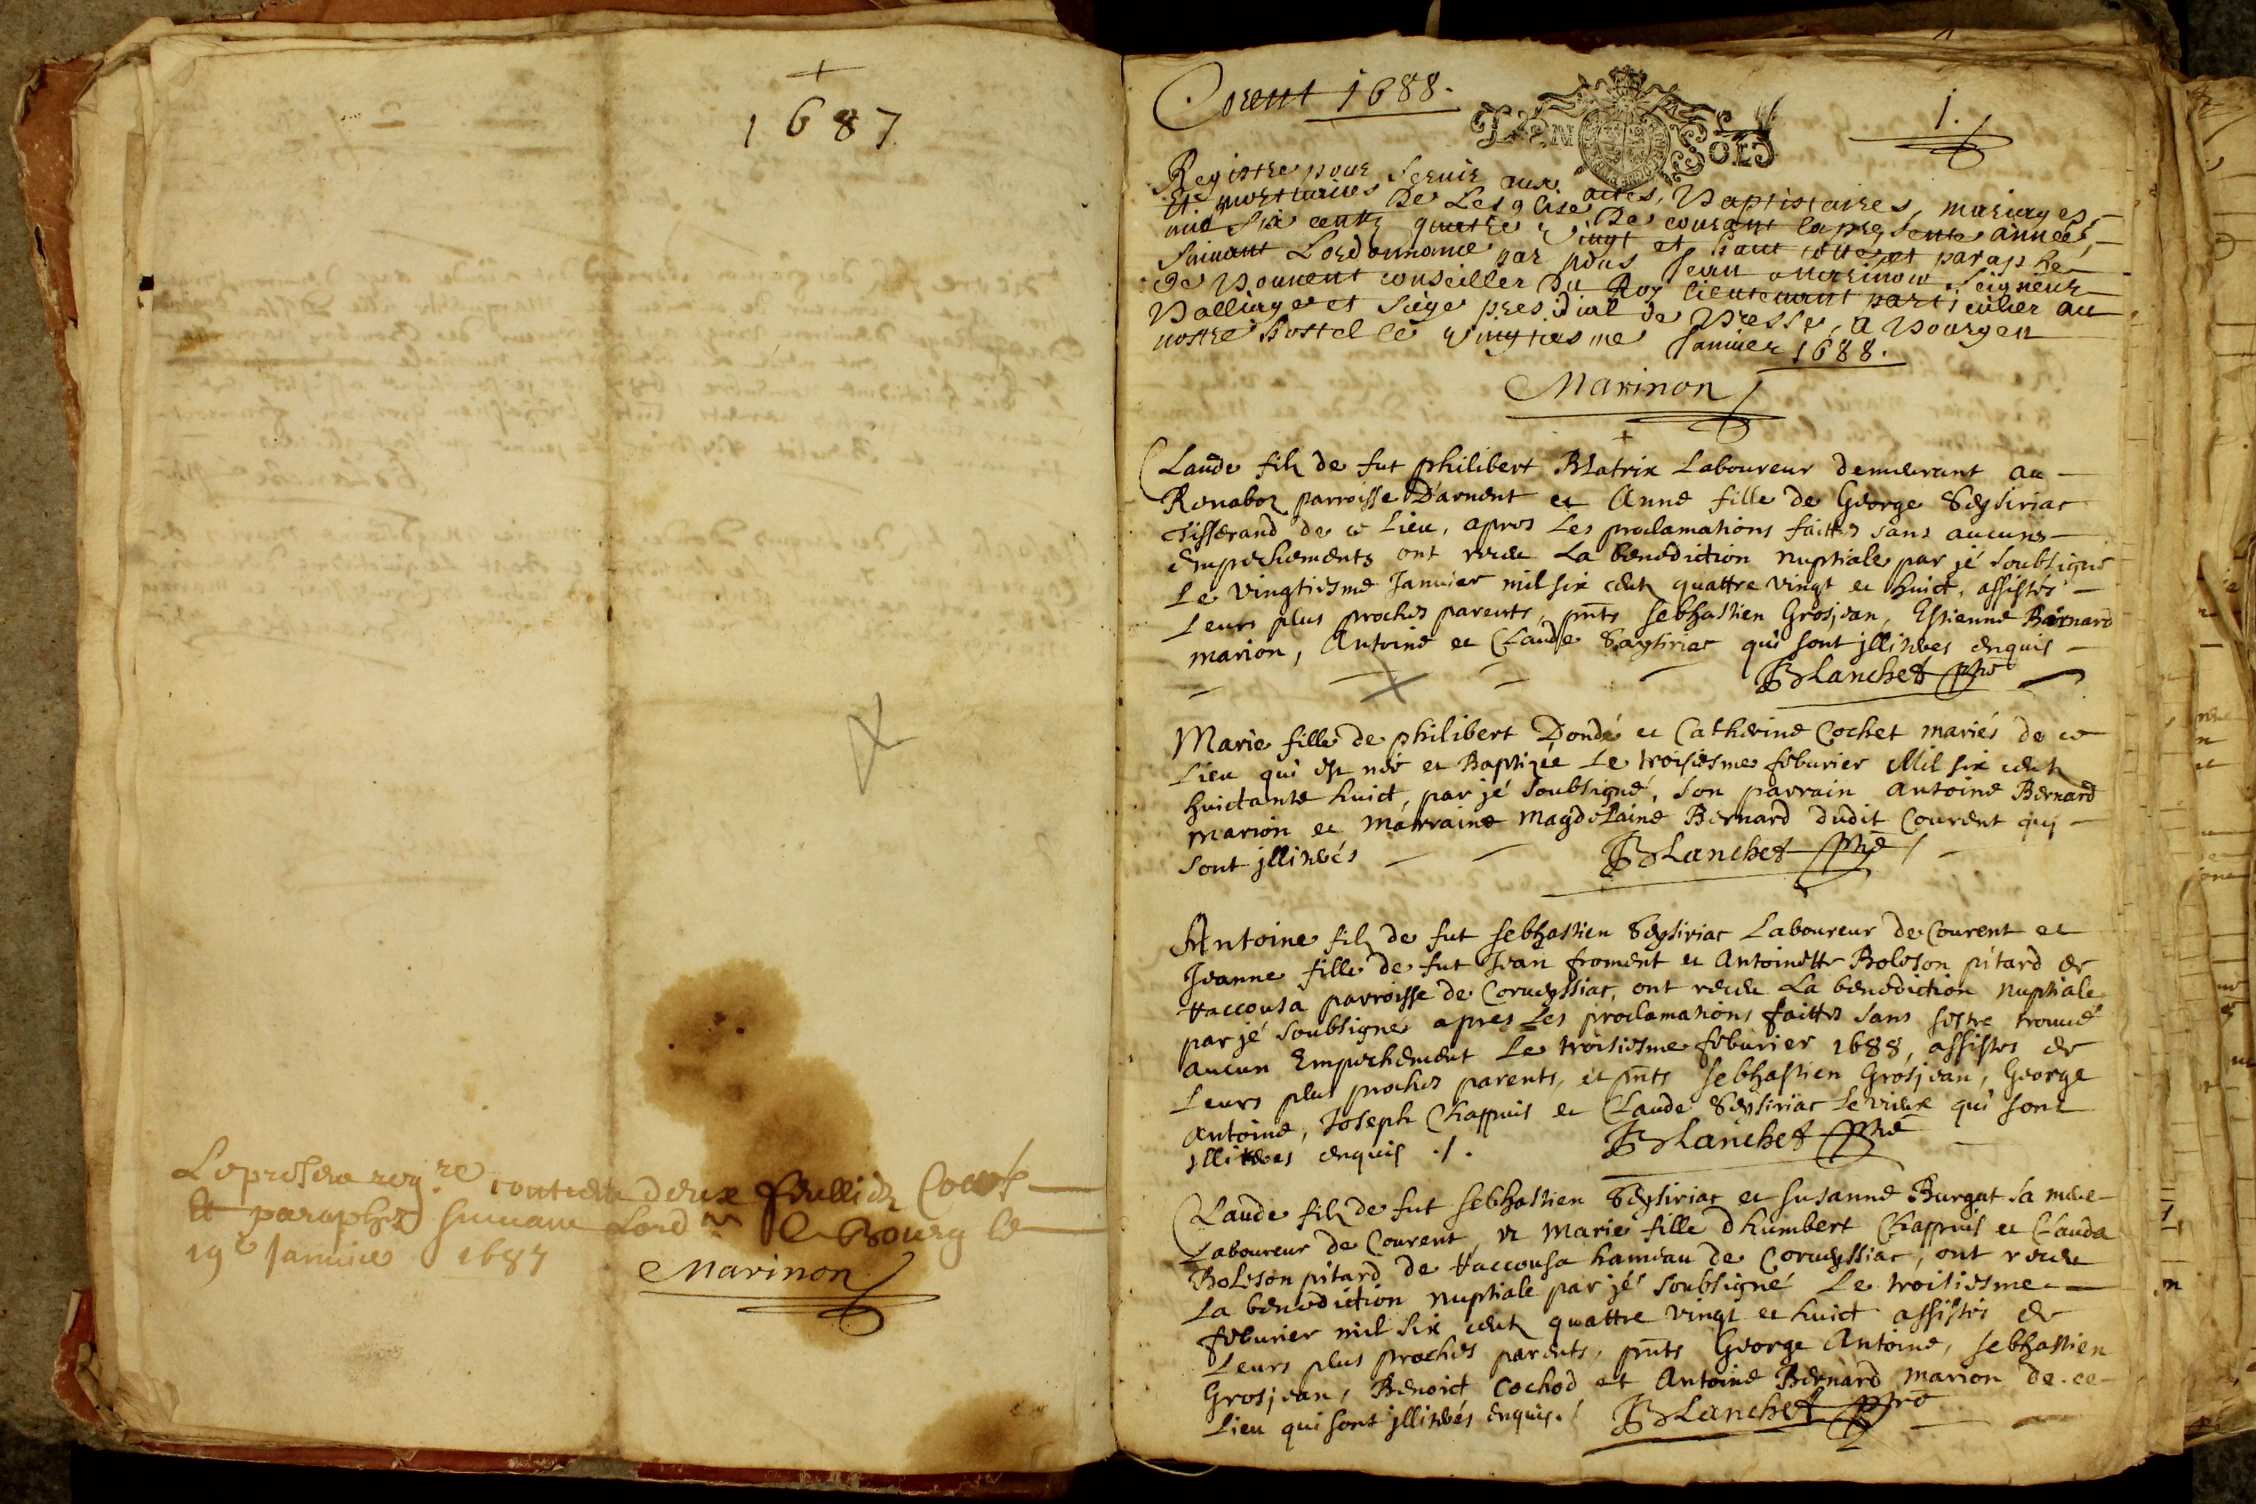 +
1687
Le present reg.re contient deux feullietz Cottés
Et paraphez suivant Lord.ce A Bourg le
19e Janvier 1687
Marinon
Corent 1688.
1.
UN SOL
Registre pour Servir aux actes, Baptistaires, mariages
Et mortuaires De Lesglise De courant la presente année
mil six centz quatre vingt et huit cotte et paraphe
Suivant Lordonnance par Nous Jean Marinon Seigneur
de Bouuent conseiller du Roy lieutenant particulier au
Balliage et siege presidial de Bresse, a Bourg en
nostre hostel le vingtiesme Januier 1688.
Marinon
+
Claude filz de fut philibert Blatrix Laboureur demeurant au
Renaboz parroisse D'arnent et Anne fille de George Seysiriac
Tisserand de ce Lieu, apres Les proclamations faittes sans aucuns
empechements ont receu La benediction nuptiale par jé soubsigné
Le vingtiesme Januier mil six centz quattre vingt et huict, assistés
Leurs plus proches parents, pnts sebhastien Grosjean, Estienne Bernard
marion, Antoine et Claude Seysiriac qui sont jllitrés enquis
Blanchet pbre
Marie fille de philibert Dondé et Catherine Cochet mariés de ce
Lieu qui est née et Baptizée Le troisiesme feburier Mil six centz
huictante huict, par jé soubsigné, son parrain Antoine Bernard
marion et marraine magdelaine Bernard dudit Courent qui
sont jllitrés
Blanchet pbre
Antoine filz de fut sebhastien Seysiriac Laboureur de Courent et
Jeanne fille de fut Jean froment et Antoinette Boleson pitard de
Haccousa parroisse de Corueyssiac, ont receu La benediction nuptiale
par jé soubsigné apres Les proclamations faittes sans sestre trouué
aucun Empechement Le troisiesme feburier 1688, assistes de
Leurs plus proches parents, et pnts sebhastien Grosjean, George
Antoine, Joseph Chappuis et Claude Seysiriac Le vieux qui sont
jllitrés enquis ./.
Blanchet pbre
Claude filz de fut sebhastien Seysiriac et susanne Burgat sa mere
Laboureur de Courent, et Marie fille dhumbert Chappuis et Clauda
Boleson pitard de Haccousa hameau de Corueyssiac, ont receu
La benediction nuptiale par jé soubsigné Le troisiesme
feburier mil six centz quattre vingt et huict assistés de
Leurs plus proches parents, pnts George Antoine, sebhastien
Grosjean, Benoict Cochod et Antoine Bernard marion de ce
Lieu qui sont jllitrés enquis./
Blanchet pbre